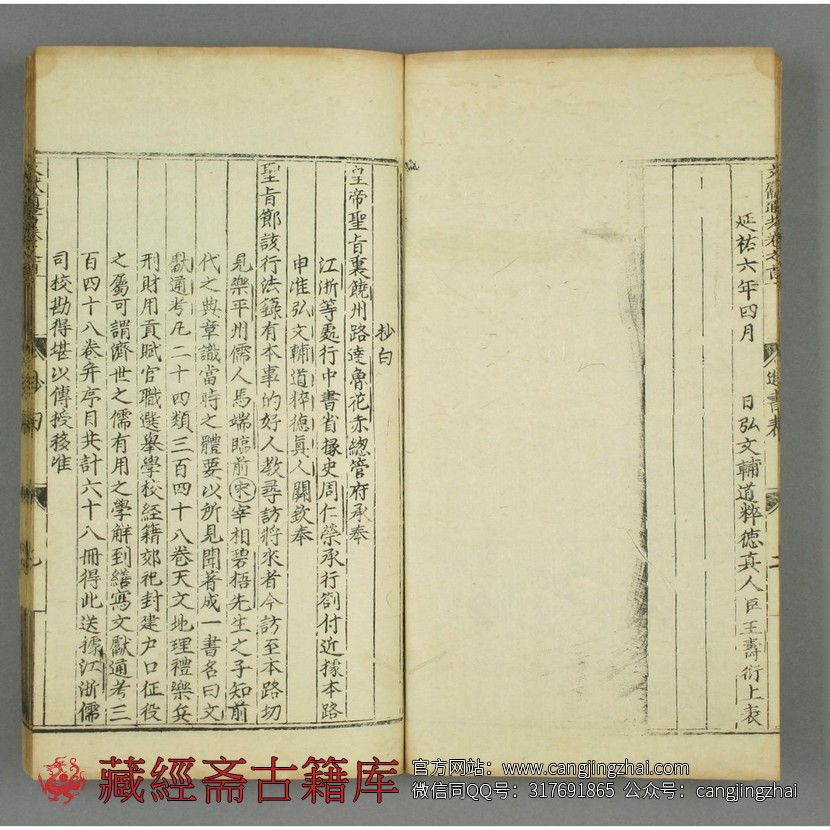 延祐六年四月　日弘文輔道粹德真人臣王壽衍上表
進書表
二
抄白
皇帝聖旨裏饒州路達魯花赤總管府承奉
江浙等處行中書省掾史周仁榮承行劄付近據本路
申准弘文輔道粹德真人關欽奉
聖旨節該行法籙有本事的好人教尋訪將來者今訪至本路切
見樂平州儒人馬端臨前宋宰相碧梧先生之子知前
代之典章識當時之體要以所見聞著成一書名曰文
獻通考凡二十四類三百四十八卷天文地理禮樂兵
刑財用貢賦官職選舉學校經籍郊祀封建户口征役
之屬可謂濟世之儒有用之學觧到繕寫文獻通考三
百四十八卷并序目共計六十八冊得此送據江浙儒
司校勘得堪以傳授移准
抄白
藏經斋古籍库
官方网站：www.cangjingzhai.com
微信同QQ号：317691865 公众号：cangjingzhai